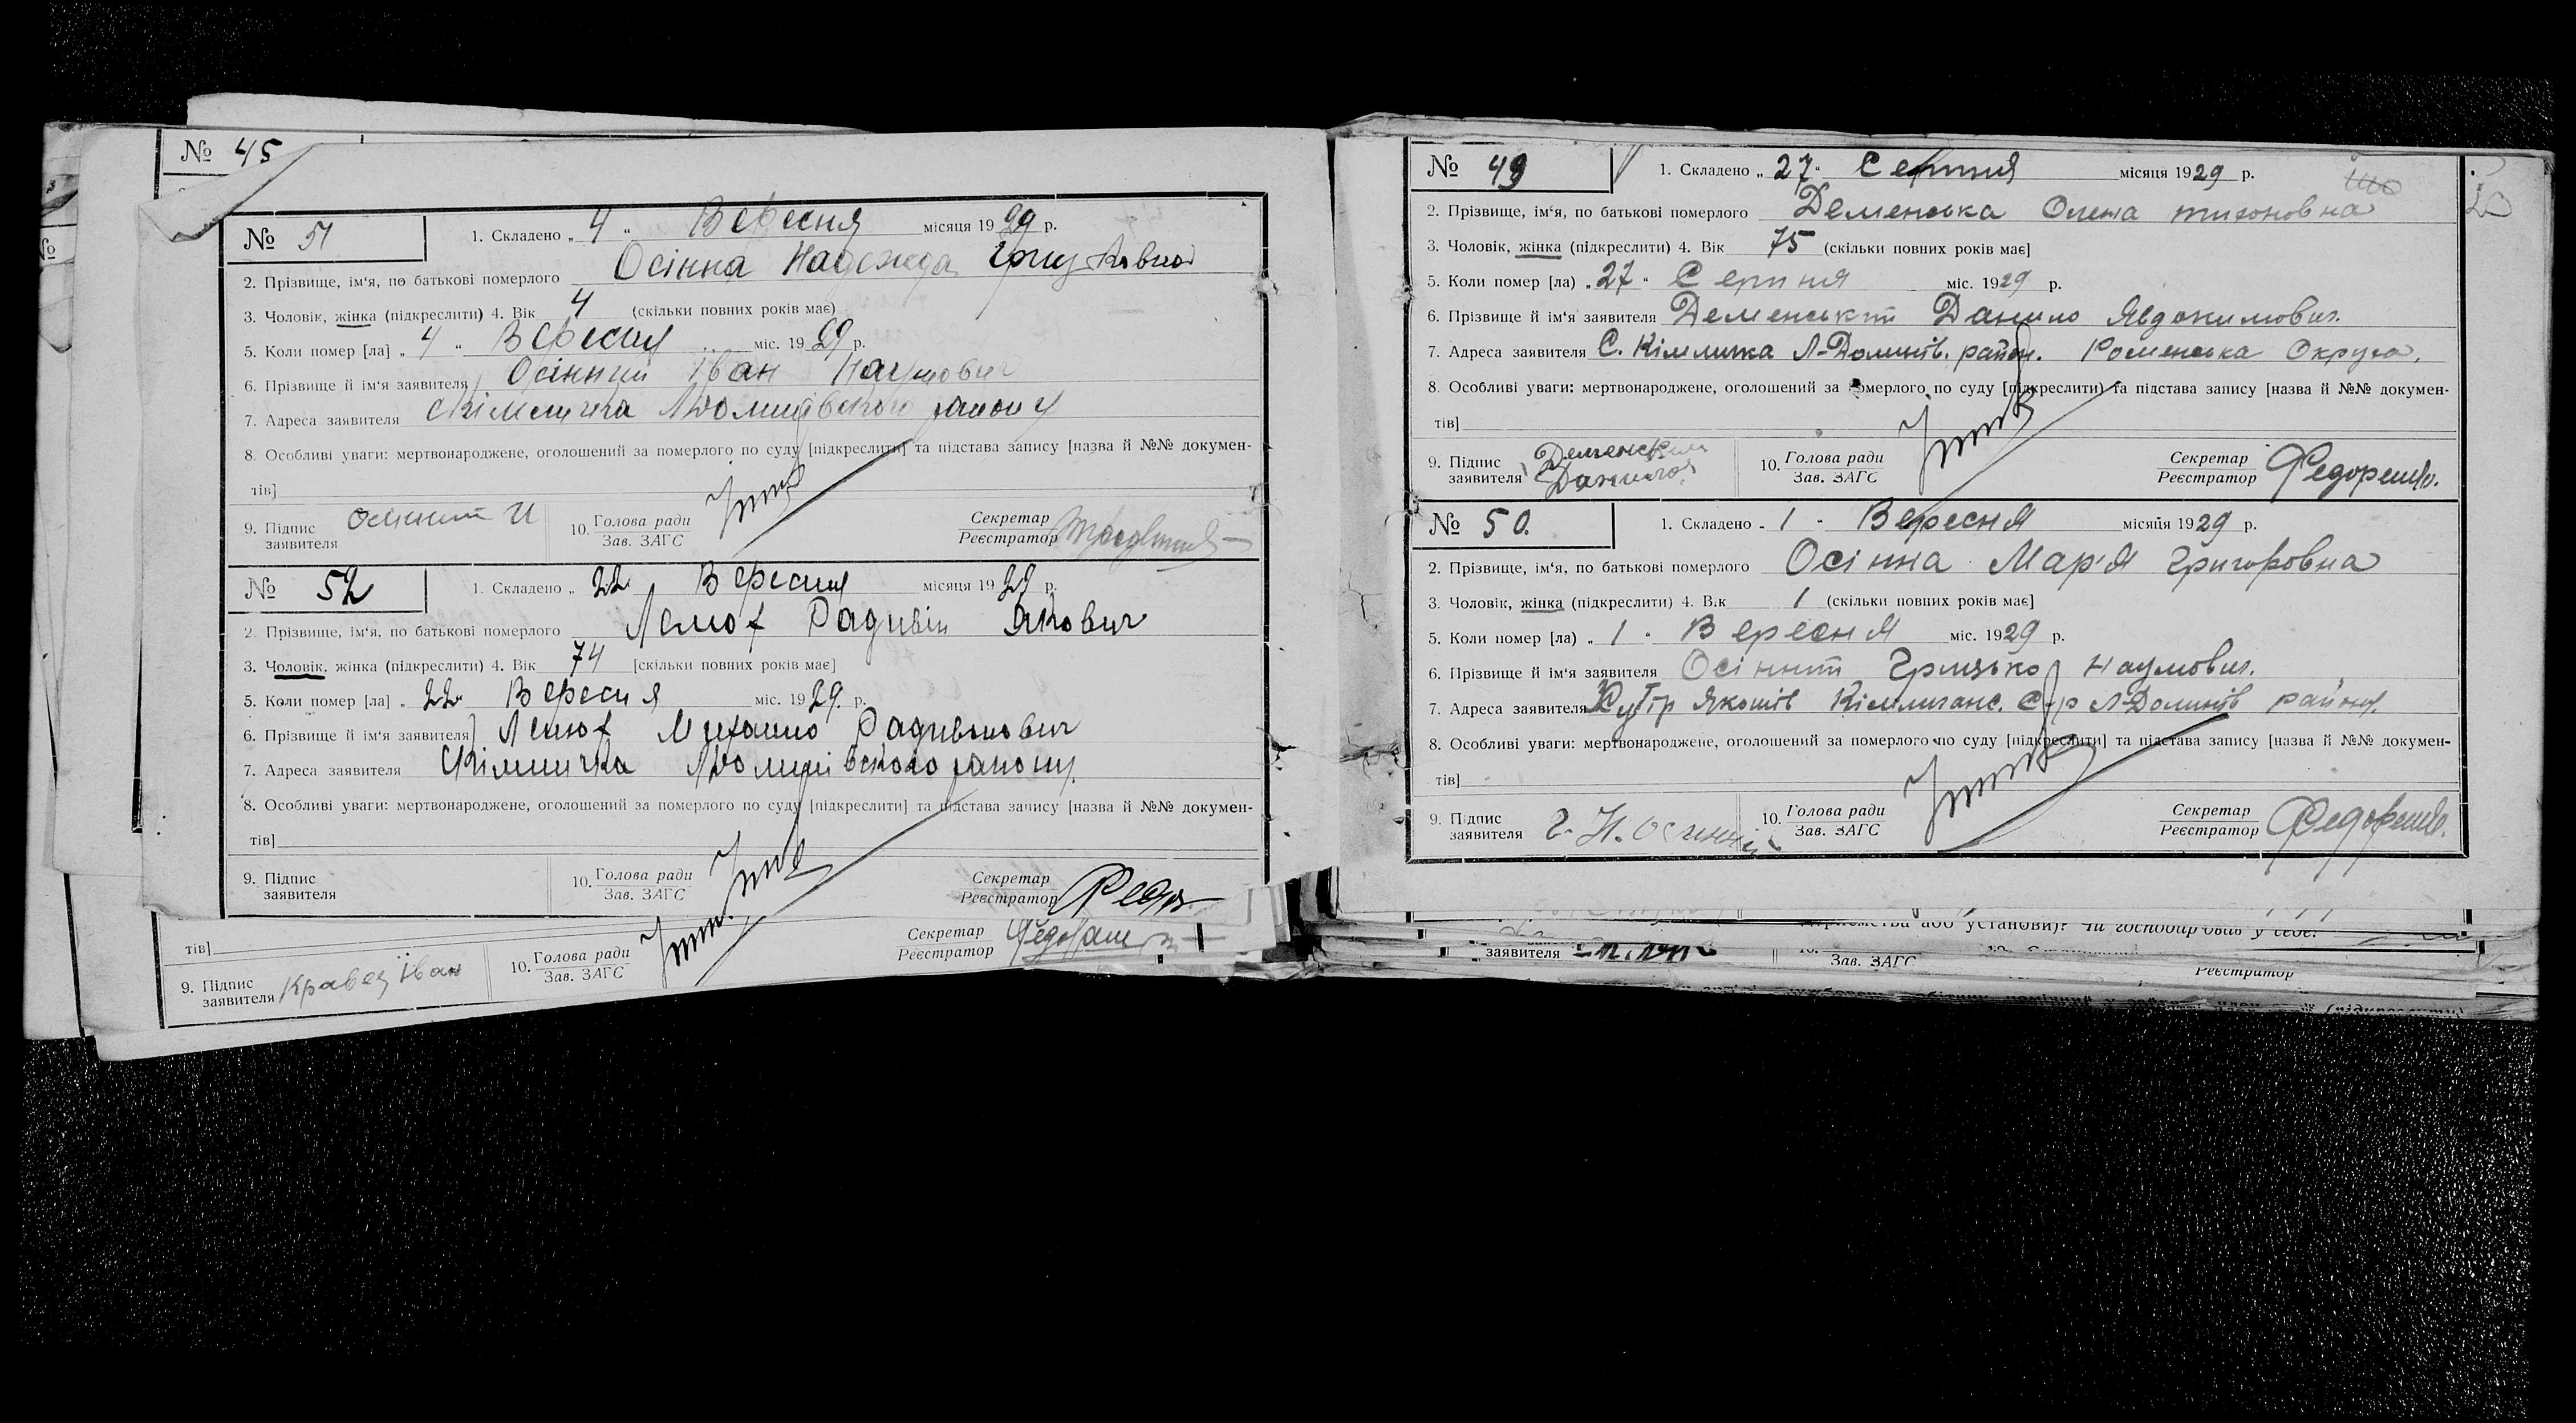 № 45
№ 51
1. Складено „ 4 “ Вересня місяця 1929 р.
2. Прізвище, ім‘я, по батькові померлого Осінна Надежда
3. Чоловік, жінка (підкреслити) 4. Вік 4 (скільки повних років має)
5. Коли помер [ла] „ 4 “ Вересня міс. 1929 р.
6. Прізвище й ім‘я заявителя Осінний Іван Наумович
7. Адреса заявителя району
8. Особливі уваги: мертвонароджене, оголошений за померлого по суду [підкреслити] та підстава запису [назва й №№ докумен-
тів]
9. Підпис заявителя И
10. Голова ради
Зав. ЗАГС
Секретар
Реєстратор
№ 52
1. Складено „ 22 “ Вересня місяця 1929 р.
2. Прізвище, ім‘я, по батькові померлого Якович
3. Чоловік, жінка (підкреслити) 4. Вік 74 [скільки повних років має]
5. Коли помер [ла] „ 22 “ Вересня міс. 1929. р.
6. Прізвище й ім‘я заявителя Михайло
7. Адреса заявителя району.
8. Особливі уваги: мертвонароджене, оголошений за померлого по суду [підкреслити] та підстава запису [назва й №№ докумен-
тів]
9. Підпис
заявителя
10. Голова ради
Зав. ЗАГС
Секретар
Реєстратор
тів]
9. Підпис
заявителя Кравец Іван
10. Голова ради
Зав. ЗАГС
Секретар
Реєстратор
№ 49
1. Складено „ 27 “ Серпня місяця 1929 р.
2. Прізвище, ім‘я, по батькові померлого Деменська Олена тихоновна
3. Чоловік, жінка (підкреслити) 4. Вік 75 (скільки повних років має]
5. Коли помер [ла) „ 27 “ Серпня міс. 1929 р.
6. Прізвище й ім‘я заявителя Деменський Данило Явдокимович.
7. Адреса заявителя С. Кімличка Л-Долинів. район. Роменська Округа.
8. Особливі уваги: мертвонароджене, оголошений за померлого по суду [підкреслити) та підстава запису [назва й №№ докумен-
тів]
9. Підпис
заявителя
10. Голова ради
Зав. ЗАГС
Секретар
Реєстратор
№ 50.
1. Складено „ 1 “ Вересня місяця 1929 р.
2. Прізвище, ім‘я, по батькові померлого Осінна Мар'я Григоровна
3. Чоловік, жінка (підкреслити) 4. Вік 1 (скільки повних років має]
5. Коли помер [ла) „ 1 “ Вересня міс. 1929 р.
6. Прізвище й ім‘я заявителя Осінний Грицько Наумович.
7. Адреса заявителя Хутір Якошів Кімличанс. С-р Л-Долинів району.
8. Особливі уваги: мертвонароджене, оголошений за померлого по суду [підкреслити] та підстава запису [назва й №№ докумен-
тів]
9. Підпис
заявителя Г. Н. Осинній
10. Голова ради
Зав. ЗАГС
Секретар
Реєстратор
заявителя
Зав. ЗАГС
Реєстратор